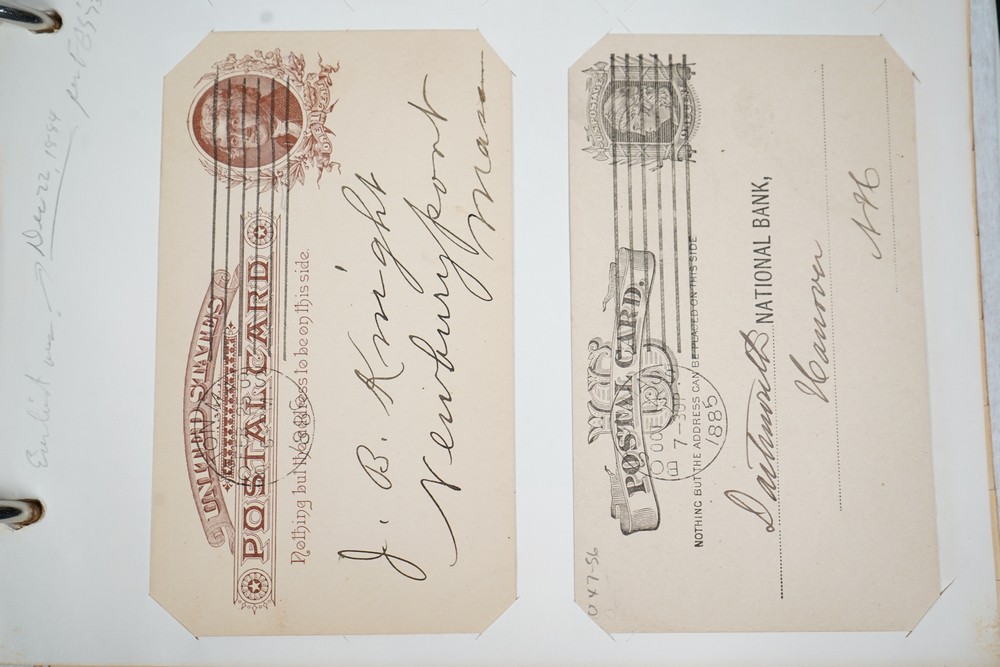 Earliest
Dec 22, 1884
UNITED STATES
POSTAL CARD
Nothing but the address to be on this side.
J. B. Knight
Newburyport
Mass
POSTAL CARD.
NOTHING BUT THE ADDRESS CAN BE PLACED ON THIS SIDE
7-
1885
Dartmouth NATIONAL BANK,
Hanover
NH
047-56